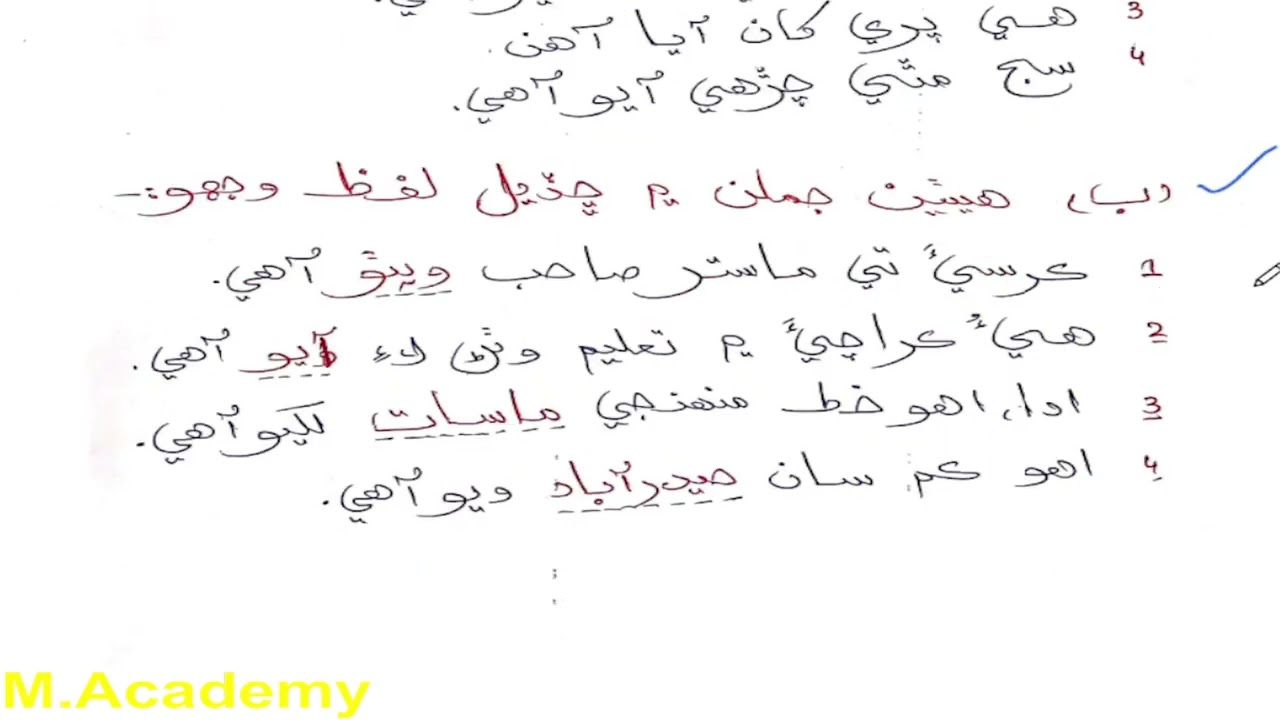 3 هـي پري کان آيا آهن.
4 سج مٿي چڙهي آيو آهي.
(ب) هيٺين جملن ۾ ڇڏيل لفظ وجهو:-
1 ڪرسيءَ تي ماستر صاحب ويٺو آهي.
2 هيءُ ڪراچيءَ ۾ تعليم وٺڻ لاءِ آيو آهي.
3 ادا، اهو خط منهنجي ماسات لکيو آهي.
4 اهو ڪم سان حيدرآباد ويو آهي.
M.Academy